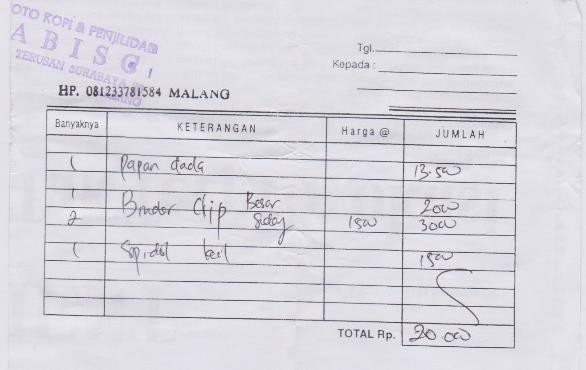 OTO KOPI & PENJILIDAN
A B I S G
TERUSAN SURABAYA
MALANG
Tgl.
Kepada :
HP. 081233781584 MALANG
Banyaknya KETERANGAN Harga @ JUMLAH
1 Papan dada 13.500
1 Binder Clip Besar 2000
2 Sedang 1500 3000
1 Spidol kecil 1500
TOTAL Rp. 20.000